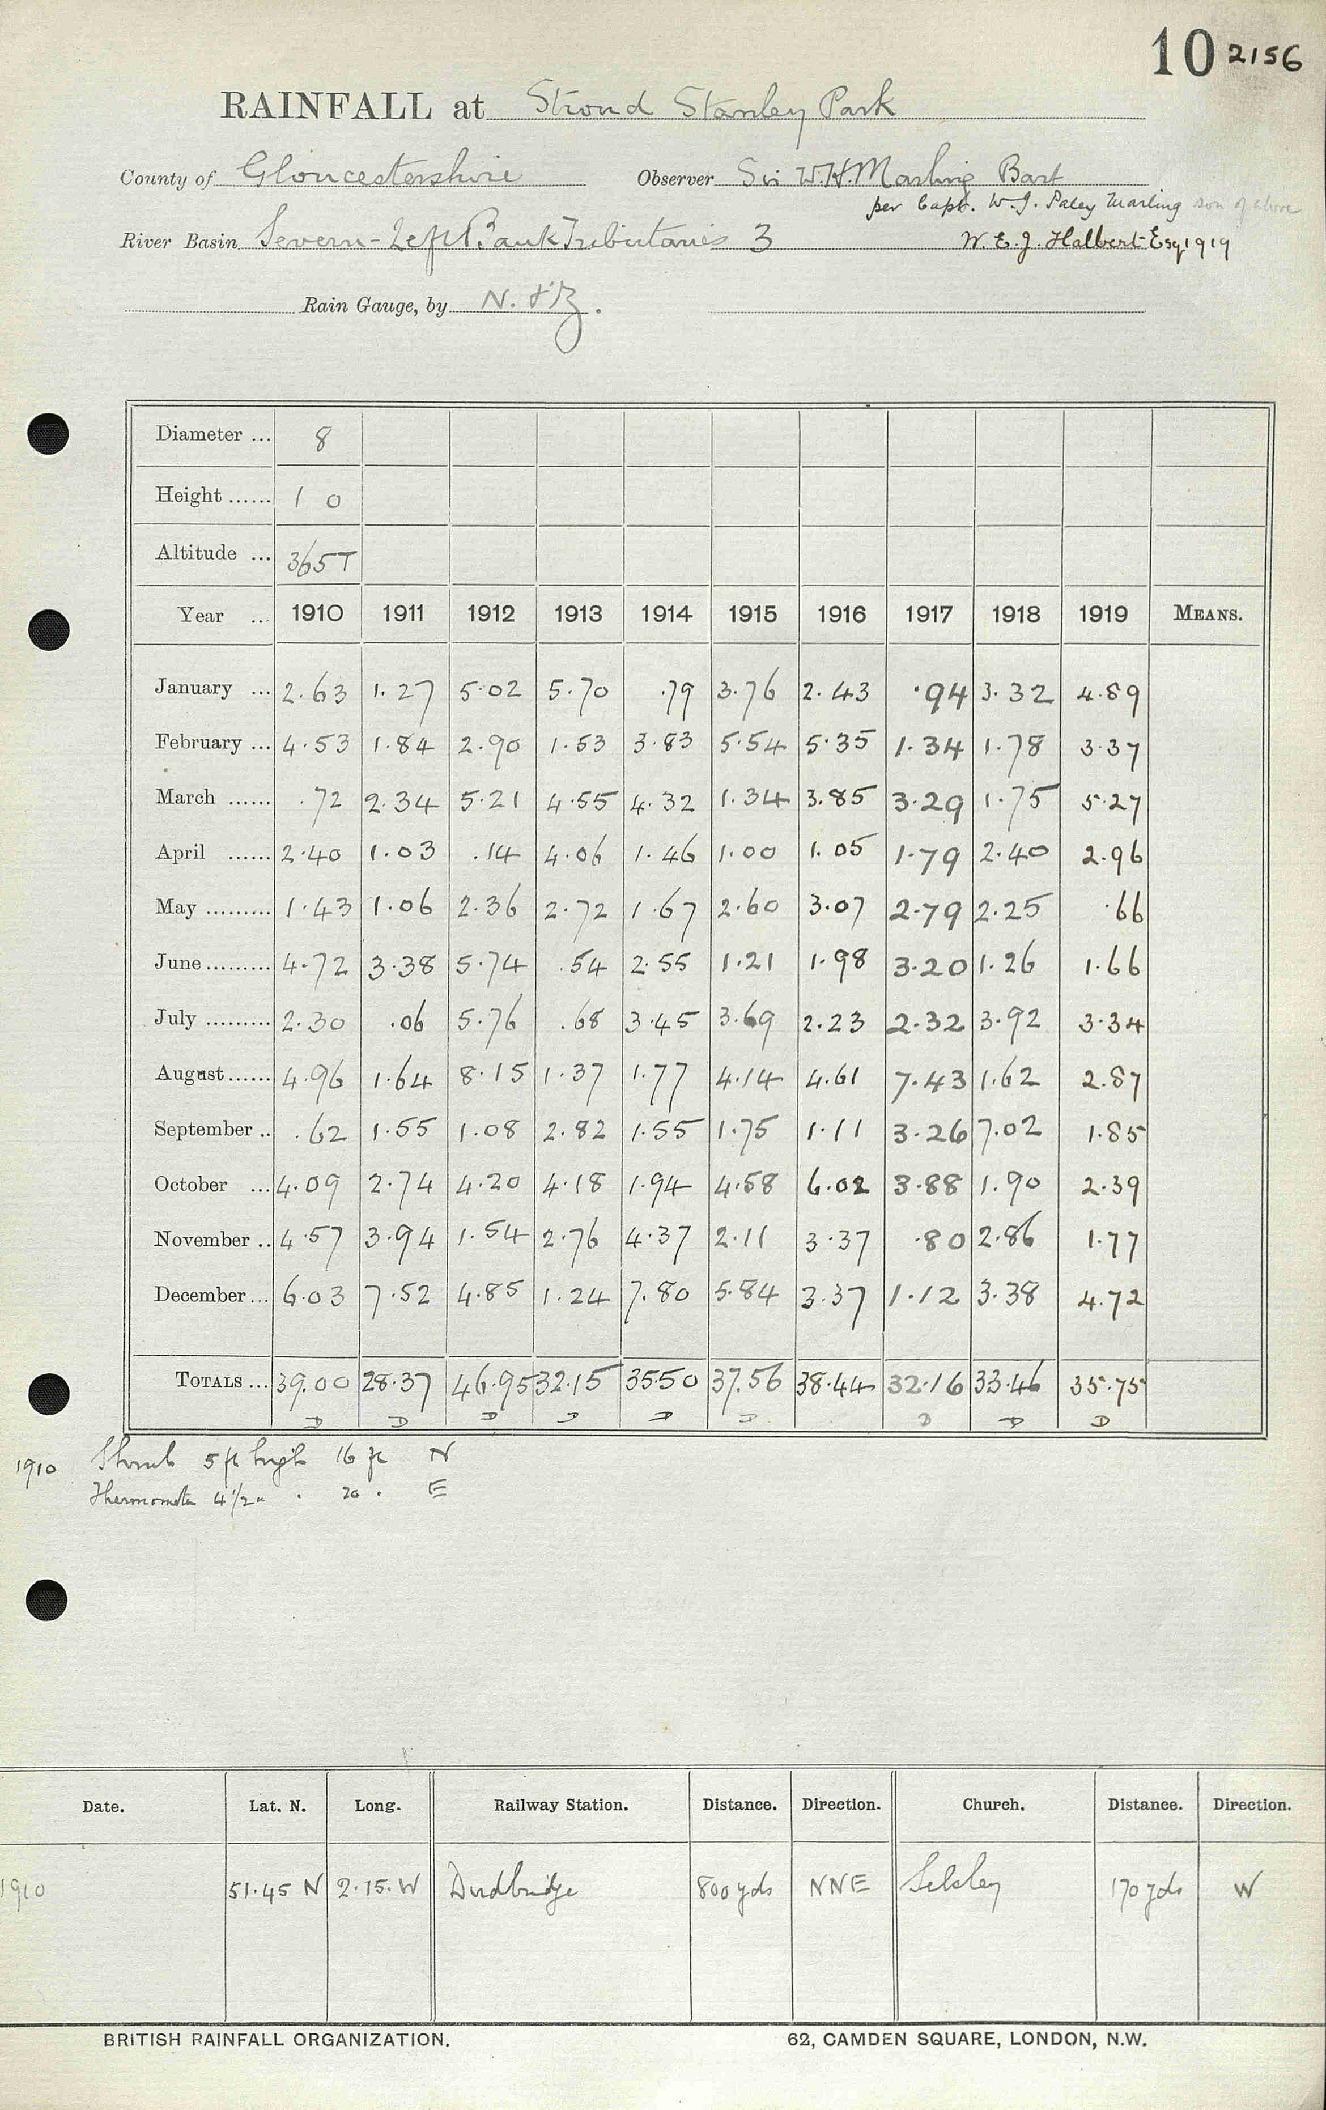 10 2156
RAINFALL at Stroud Stanley Park
County of Gloucestershire Observer Sir W.H. Marling Bart
per Capt. W. J. Paley Marling son of above
River Basin Severn - Left Bank Tributaries 3 W. E. J. Halbert Esq 1919
Rain Gauge, by N. & Z.
Diameter ... 8
Height ...... 1 0
Altitude ... 365T
Year ... 1910 1911 1912 1913 1914 1915 1916 1917 1918 1919 MEANS.
January ... 2.63 1.27 5.02 5.70 .79 3.76 2.43 .94 3.32 4.89
February ... 4.53 1.84 2.90 1.53 3.83 5.54 5.35 1.34 1.78 3.37
March ...... .72 2.34 5.21 4.55 4.32 1.34 3.85 3.29 1.75 5.27
April ...... 2.40 1.03 .14 4.06 1.46 1.00 1.05 1.79 2.40 2.96
May ......... 1.43 1.06 2.36 2.72 1.67 2.60 3.07 2.79 2.25 .66
June ......... 4.72 3.38 5.74 .54 2.55 1.21 1.98 3.20 1.26 1.66
July ......... 2.30 .06 5.76 .68 3.45 3.69 2.23 2.32 3.92 3.34
August ...... 4.96 1.64 8.15 1.37 1.77 4.14 4.61 7.43 1.62 2.87
September .. .62 1.55 1.08 2.82 1.55 1.75 1.11 3.26 7.02 1.85
October ... 4.09 2.74 4.20 4.18 1.94 4.58 6.02 3.88 1.90 2.39
November .. 4.57 3.94 1.54 2.76 4.37 2.11 3.37 .80 2.86 1.77
December ... 6.03 7.52 4.85 1.24 7.80 5.84 3.37 1.12 3.38 4.72
TOTALS ... 39.00 28.37 46.95 32.15 35.50 37.56 38.44 32.16 33.46 35.75
D D D D D D D D D
1910 Shrub 5 ft high 16 ft N
Thermometer 4 1/2 " . 20 . E
Date. Lat. N. Long. Railway Station. Distance. Direction. Church. Distance. Direction.
1910 51.45 N 2.15.W Dudbridge 800 yds NNE Selsley 170 yds W
BRITISH RAINFALL ORGANIZATION. 62, CAMDEN SQUARE, LONDON, N.W.